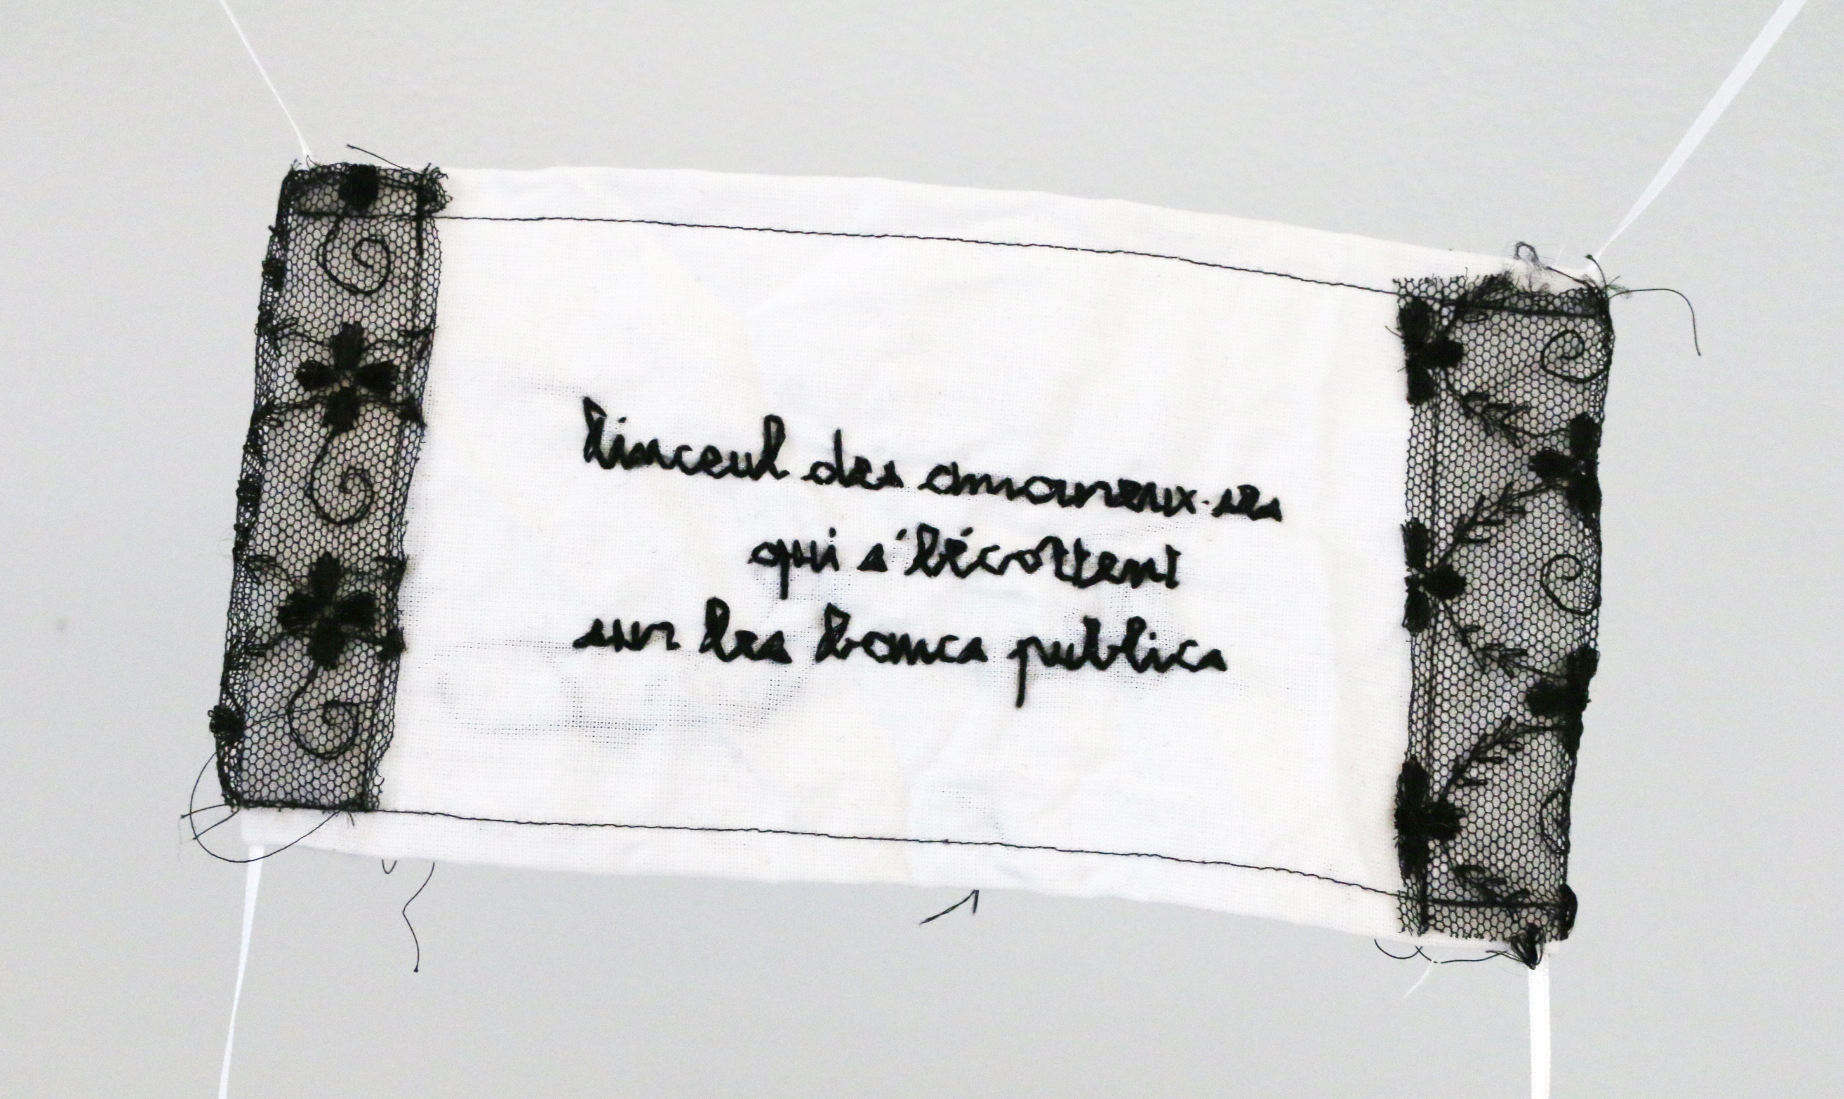 linceul des amoureux·ses
qui s'bécottent
sur les bancs publics